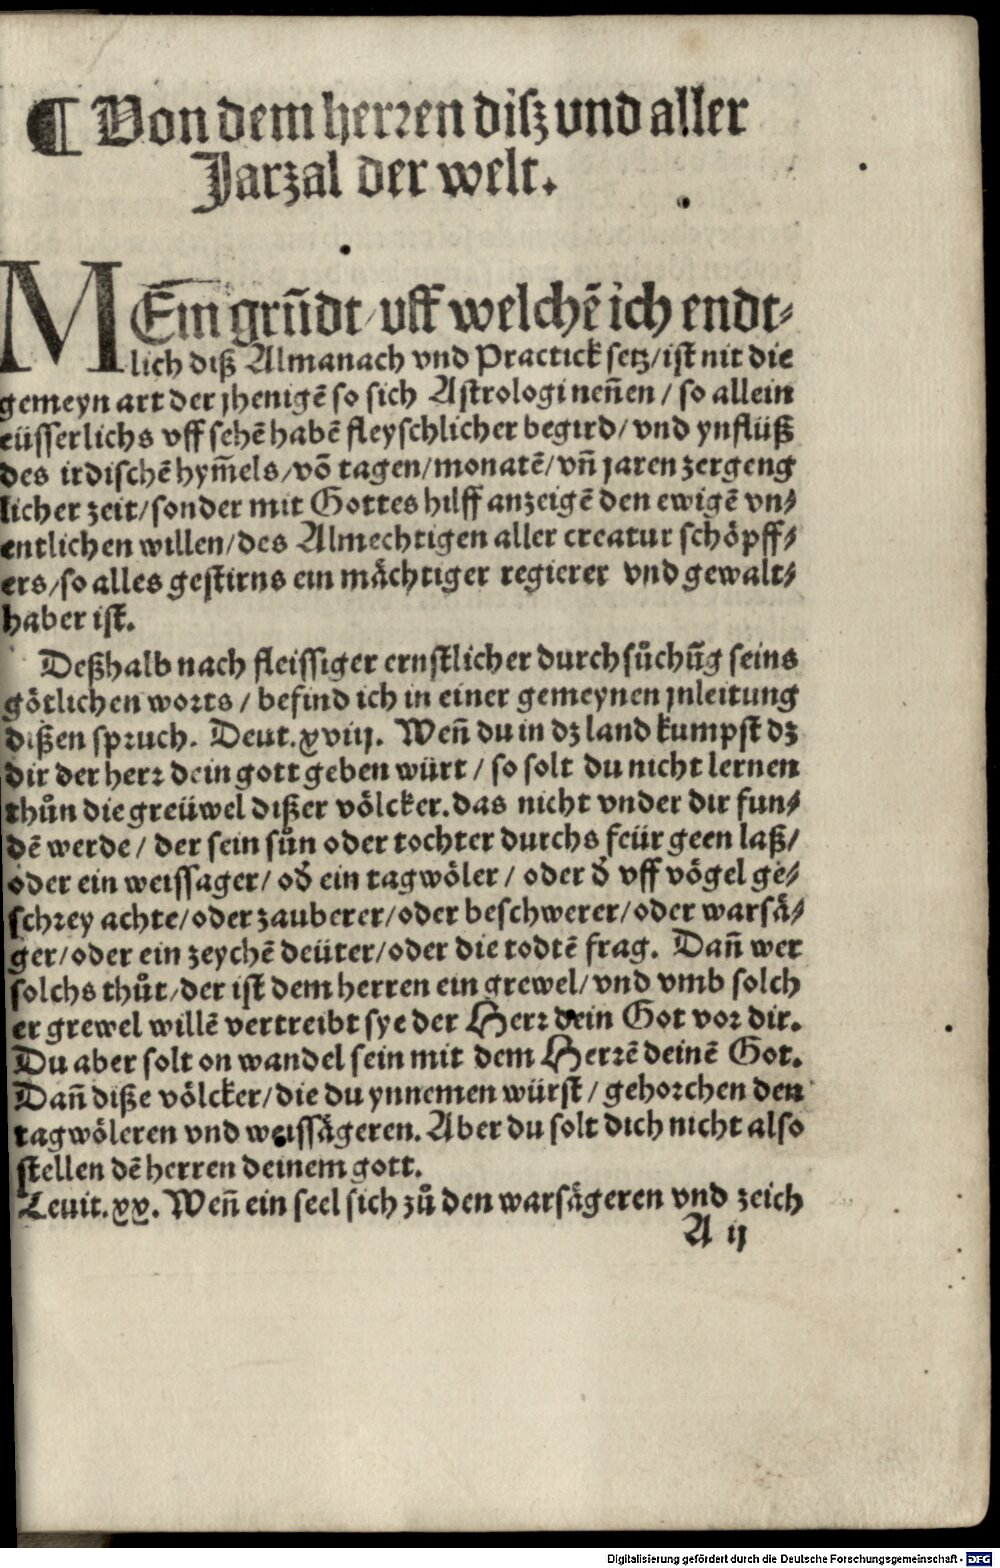 ¶ Von dem herꝛen diſz vnd aller
Jarzal der welt.
MEin grũdt / uff welchẽ ich endt⸗
lich diß Almanach vnd Practick ſetz / iſt nit die
gemeyn art der jhenigẽ so ſich Aſtrologi neñen / ſo allein
eüſſerlichs vff ſehẽ habẽ fleyſchlicher begird / vnd ynflüß
des irdiſchẽ hym̃els / võ tagen / monatẽ / vñ jaren zergeng
licher zeit / ſonder mit Gottes hilff anzeigẽ den ewigẽ vn⸗
entlichen willen / des Almechtigen aller creatur ſchöpff⸗
ers / ſo alles geſtirns ein mächtiger regierer vnd gewalt⸗
haber iſt.
Deßhalb nach fleiſſiger ernſtlicher durchſůchũg ſeins
götlichen woꝛts / befind ich in einer gemeynen jnleitung
dißen ſpꝛuch. Deut. xviij. Weñ du in dz land kumpſt dz
dir der herꝛ dein gott geben würt / ſo ſolt du nicht lernen
thůn die greüwel dißer völcker. das nicht vnder dir fun⸗
dẽ werde / der ſein ſůn oder tochter durchs feür geen laß /
oder ein weiſſager / od̕ ein tagwöler / oder d̕ vff vögel ge⸗
ſchꝛey achte / oder zauberer / oder beſchwerer / oder warſä⸗
ger / oder ein zeychẽ deüter / oder die todtẽ frag. Dañ wer
ſolchs thůt / der iſt dem herren ein grewel / vnd vmb ſolch
er grewel willẽ vertreibt ſye der Herꝛ dein Got voꝛ dir.
Du aber ſolt on wandel ſein mit dem Herꝛẽ deinẽ Got.
Dañ diße völcker / die du ynnemen würſt / gehoꝛchen den
tagwöleren vnd weiſſägeren. Aber du ſolt dich nicht alſo
ſtellen dẽ herren deinem gott.
Leuit. xx. Weñ ein ſeel ſich zů den warſägeren vnd zeich
A ij
Digitalisierung gefördert durch die Deutsche Forschungsgemeinschaft - DFG